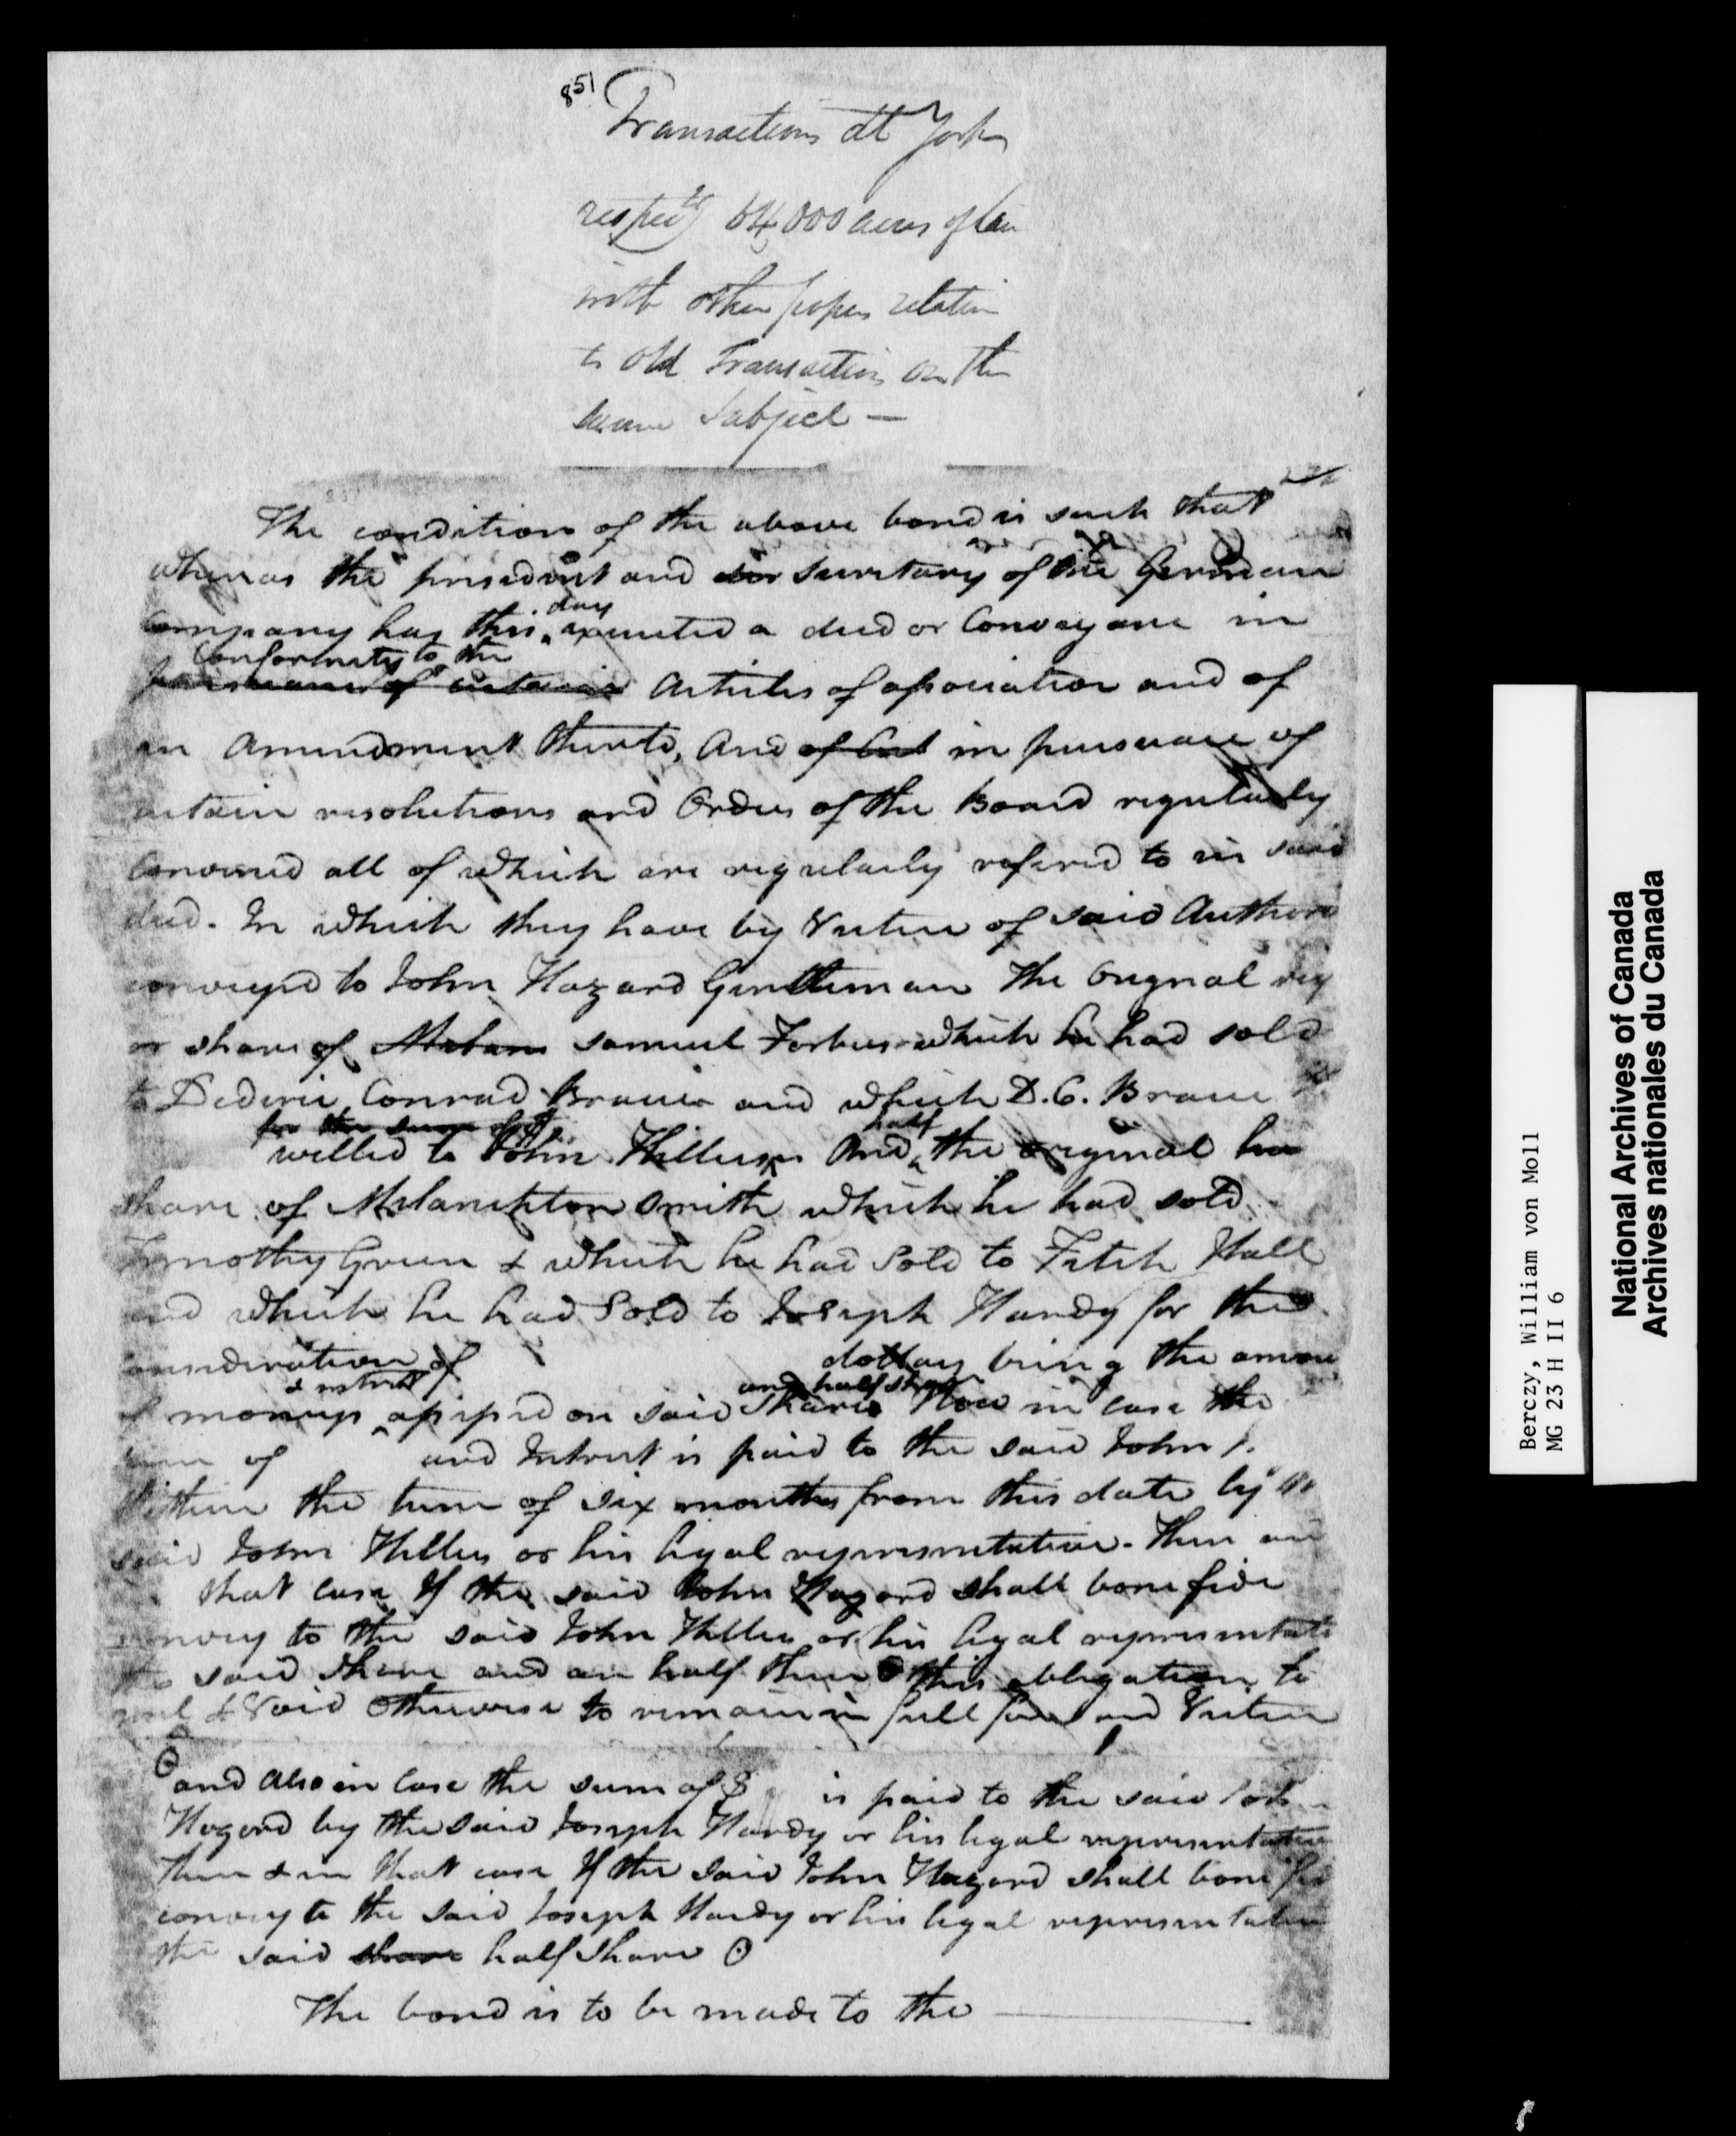 851
Transactions at York
respectg 64,000 acres of Lan
with other papers relation
to old Transactions on the
same Subject —
The condition of the above bond is such that
whereas the president and secretary of the German
Company has this day executed a deed or Conveyance in
Conformity to the
pursuance of certain Articles of association and of
an Amendment thereto, And of in pursuance of
certain resolutions and Orders of the Board regularly
Convened all of which are regularly refered to in said
deed. In which they have by Virtue of said Authori
conveyed to John Hazard Gentleman the Orignal
or share of Melanc Samuel Forbes which he had sold
to Dederic Conrad Braui and which D. C. Braui
for the sum of
willed to John Hilley And half the original
share of Melanckton Smith which he had sold
Timothy Green & which he had Sold to Fitch Hall
and which he had Sold to Joseph Hardy for the
consideration of dollars being the amou
of moneys & intrest assessed on said Share and half share Now in case the
sum of and Intrest is paid to the said John
Within the term of six months from this date by
said John Hilley or his legal representative. Then and
that case If the said John Hazard shall bone fide
convey to the said John Hilley or his legal representati
the said share and an half then this obligation to
null & Void Otherwise to remain in full force and Virtue
and Also in Case the sum of $ is paid to the said Joh
Hazard by the said Joseph Hardy or his legal representative
then & in that case If the said John Hazard shall bone fid
convey to the said Joseph Hardy or his legal representative
the said share half Share
The bond is to be made to the
Berczy, William von Moll
MG 23 H II 6
National Archives of Canada
Archives nationales du Canada